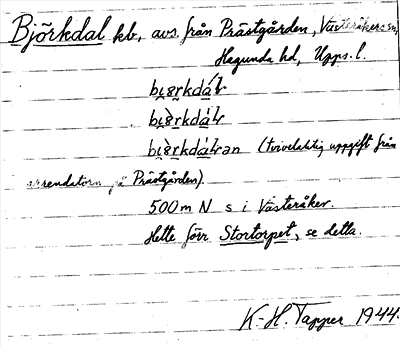 Björkdal kb, avs. från Prästgården, Västeråkers sn,
Hagunda hd, Upps. l.
bi̯ørkdál
bi̯ø̀rkdál
bi̯ørkdálan (tvivelaktig uppgift från
arrendatorn på Prästgården).
500 m N s i Västeråker.
Hette förr Stortorpet, se detta.
K-H. Tapper 1944.